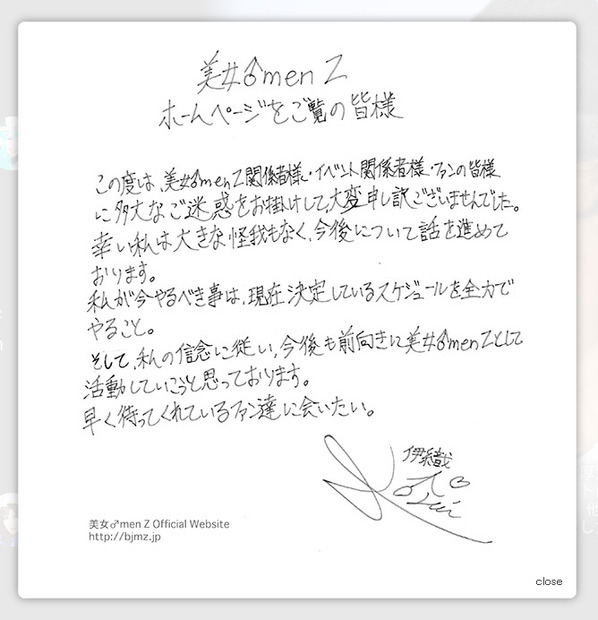 美女♂men Z
ホームページをご覧の皆様
この度は、美女♂men Z関係者様・イベント関係者様・ファンの皆様
に多大なご迷惑をお掛けして、大変申し訳ございませんでした。
幸い私は大きな怪我もなく、今後について話を進めて
おります。
私が今やるべき事は、現在決定しているスケジュールを全力で
やること。
そして、私の信念に従い、今後も前向きに美女♂men Zとして
活動していこうと思っております。
早く待ってくれているファン達に会いたい。
伊織
美女♂men Z Official Website
http://bjmz.jp
close